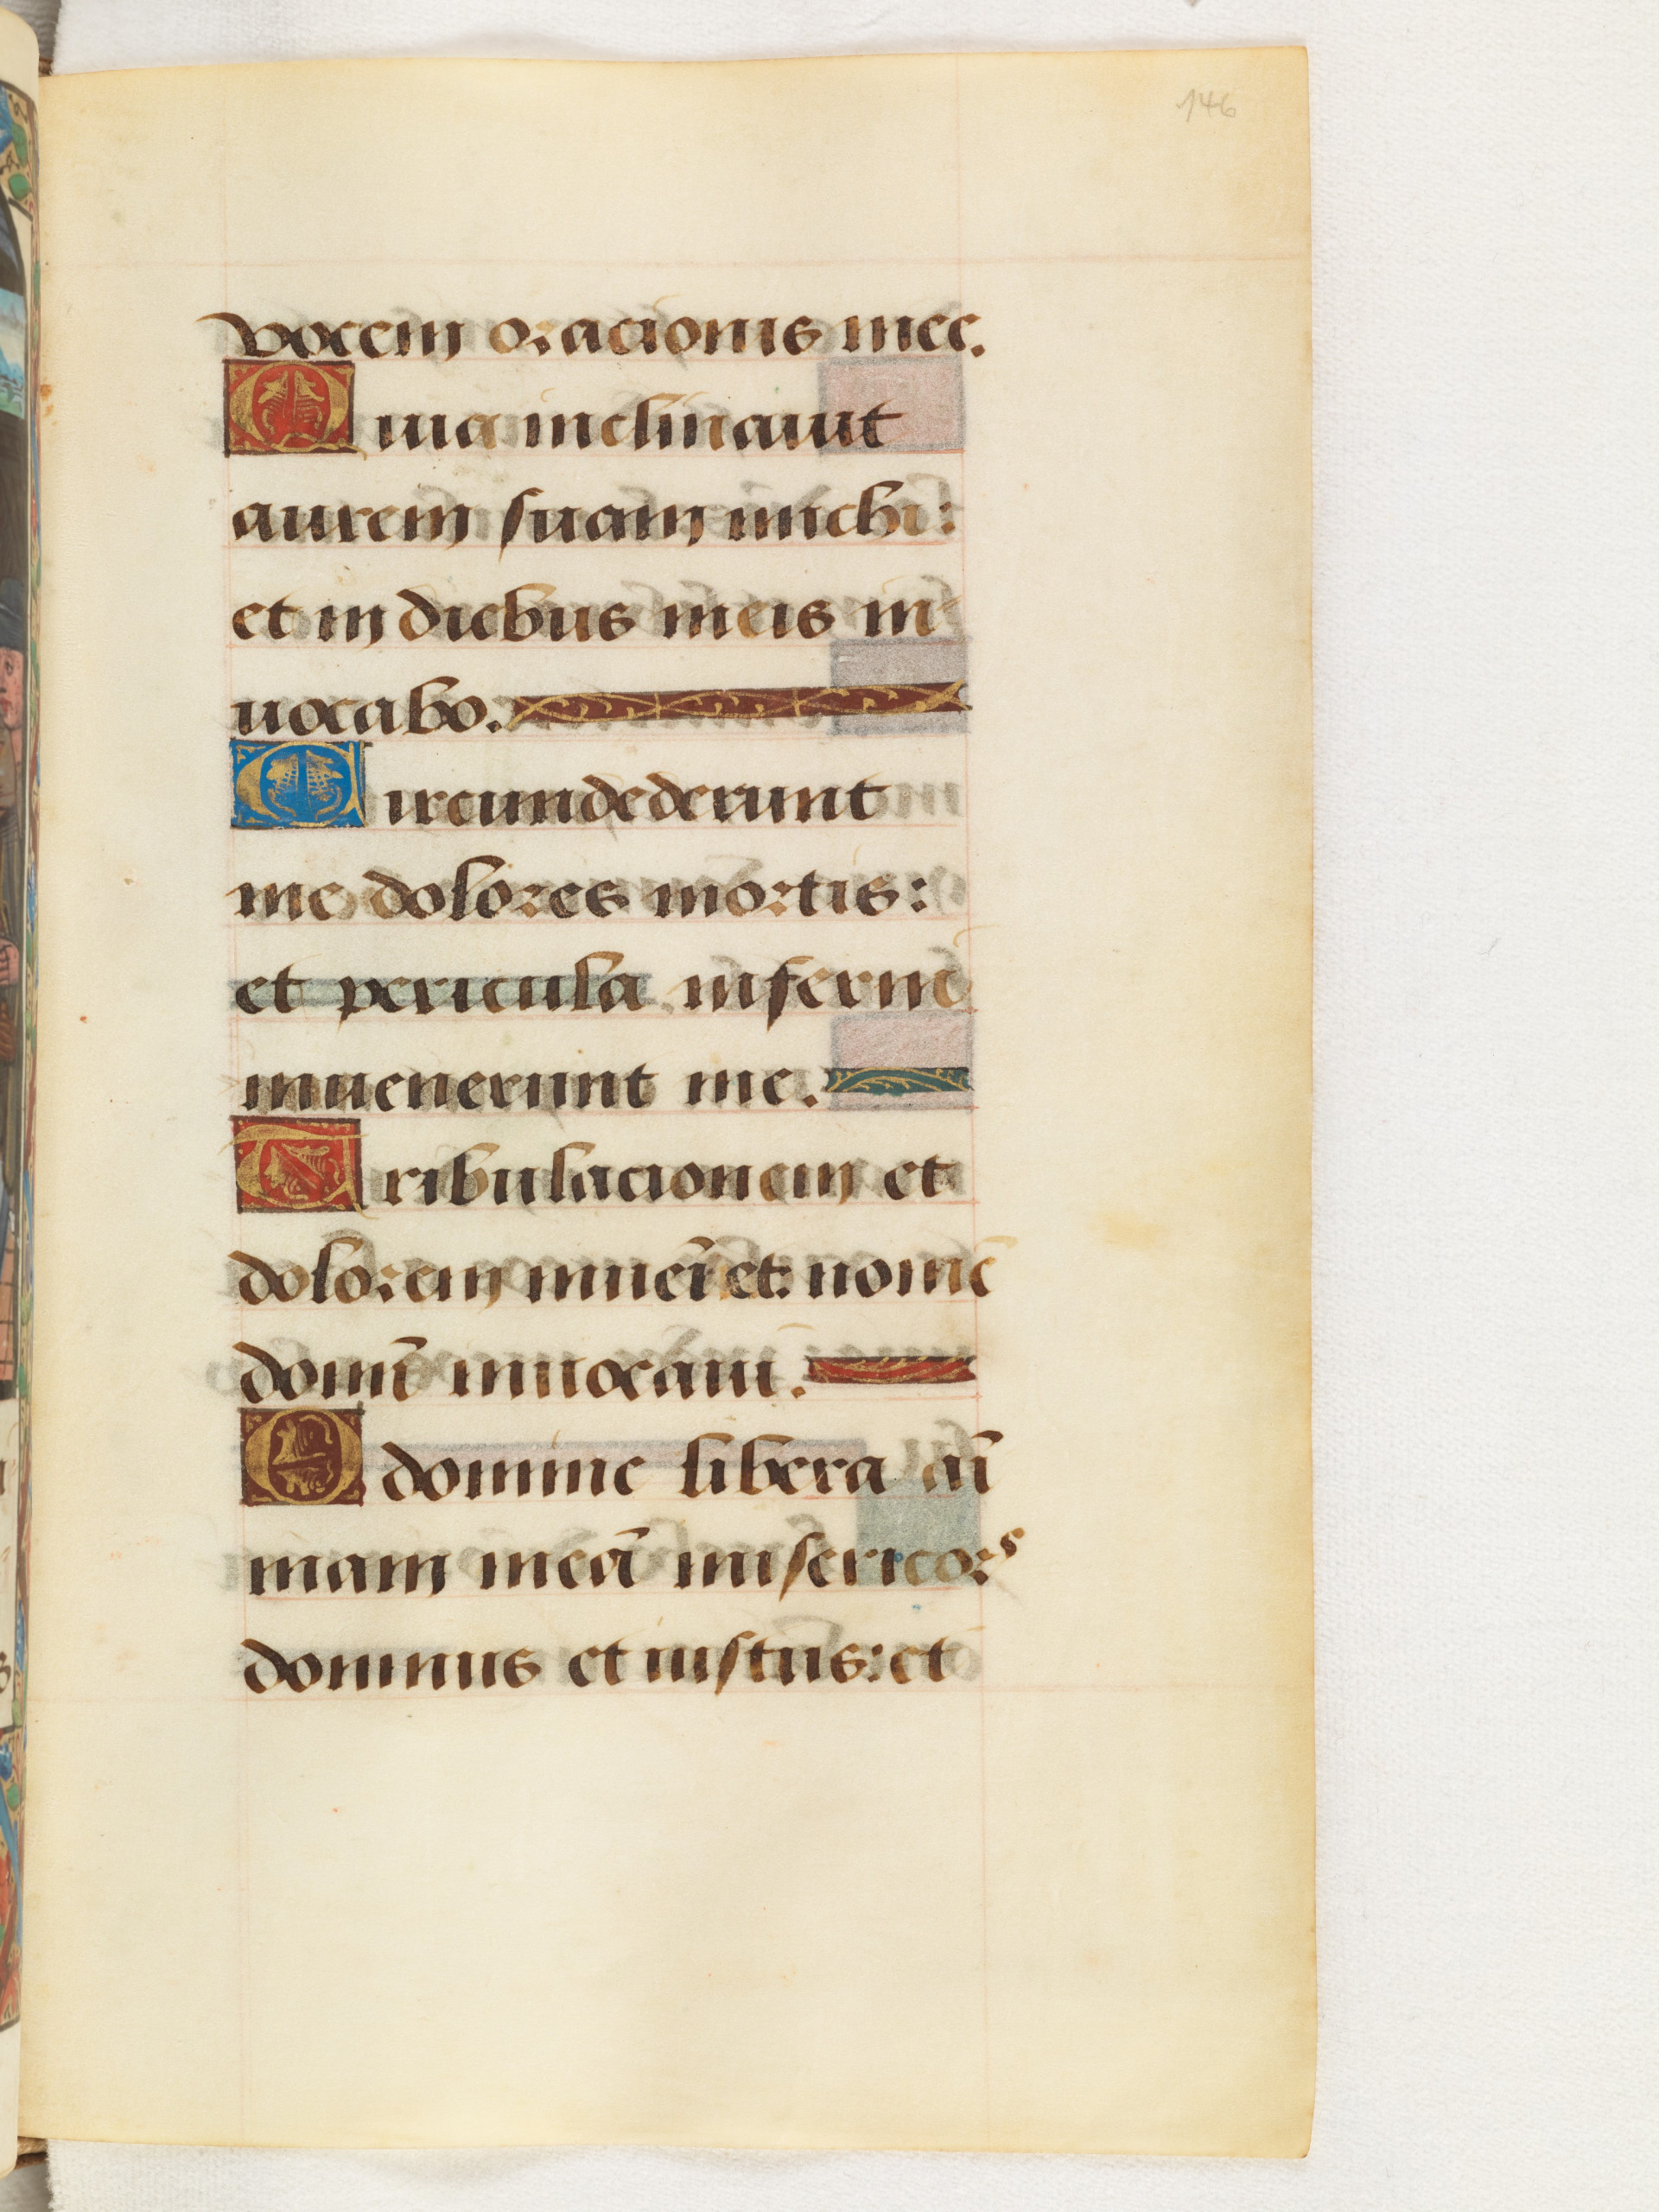 146
vocem oracionis mee.
Quia inclinauit
aurem suam michi:
et in diebus meis in
uocabo.
Circundederunt
me dolores mortis:
et pericula inferni
inuenerunt me.
Tribulacionem et
dolorem inueni et: nomē
domī inuocaui.
O domine libera ani
mam meā misericors
dominus et iustus: et